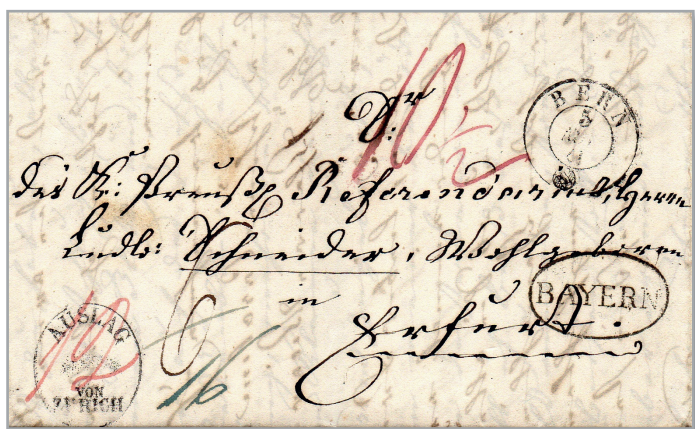 10½
BERN
5
Sr
des Kn: Preuß. Referendariats, Herrn
Ludw: Schneider, Wohlgeboren
in
BAYERN
Erfurt.
AUSLAG
VON
ZÜRICH
6
16